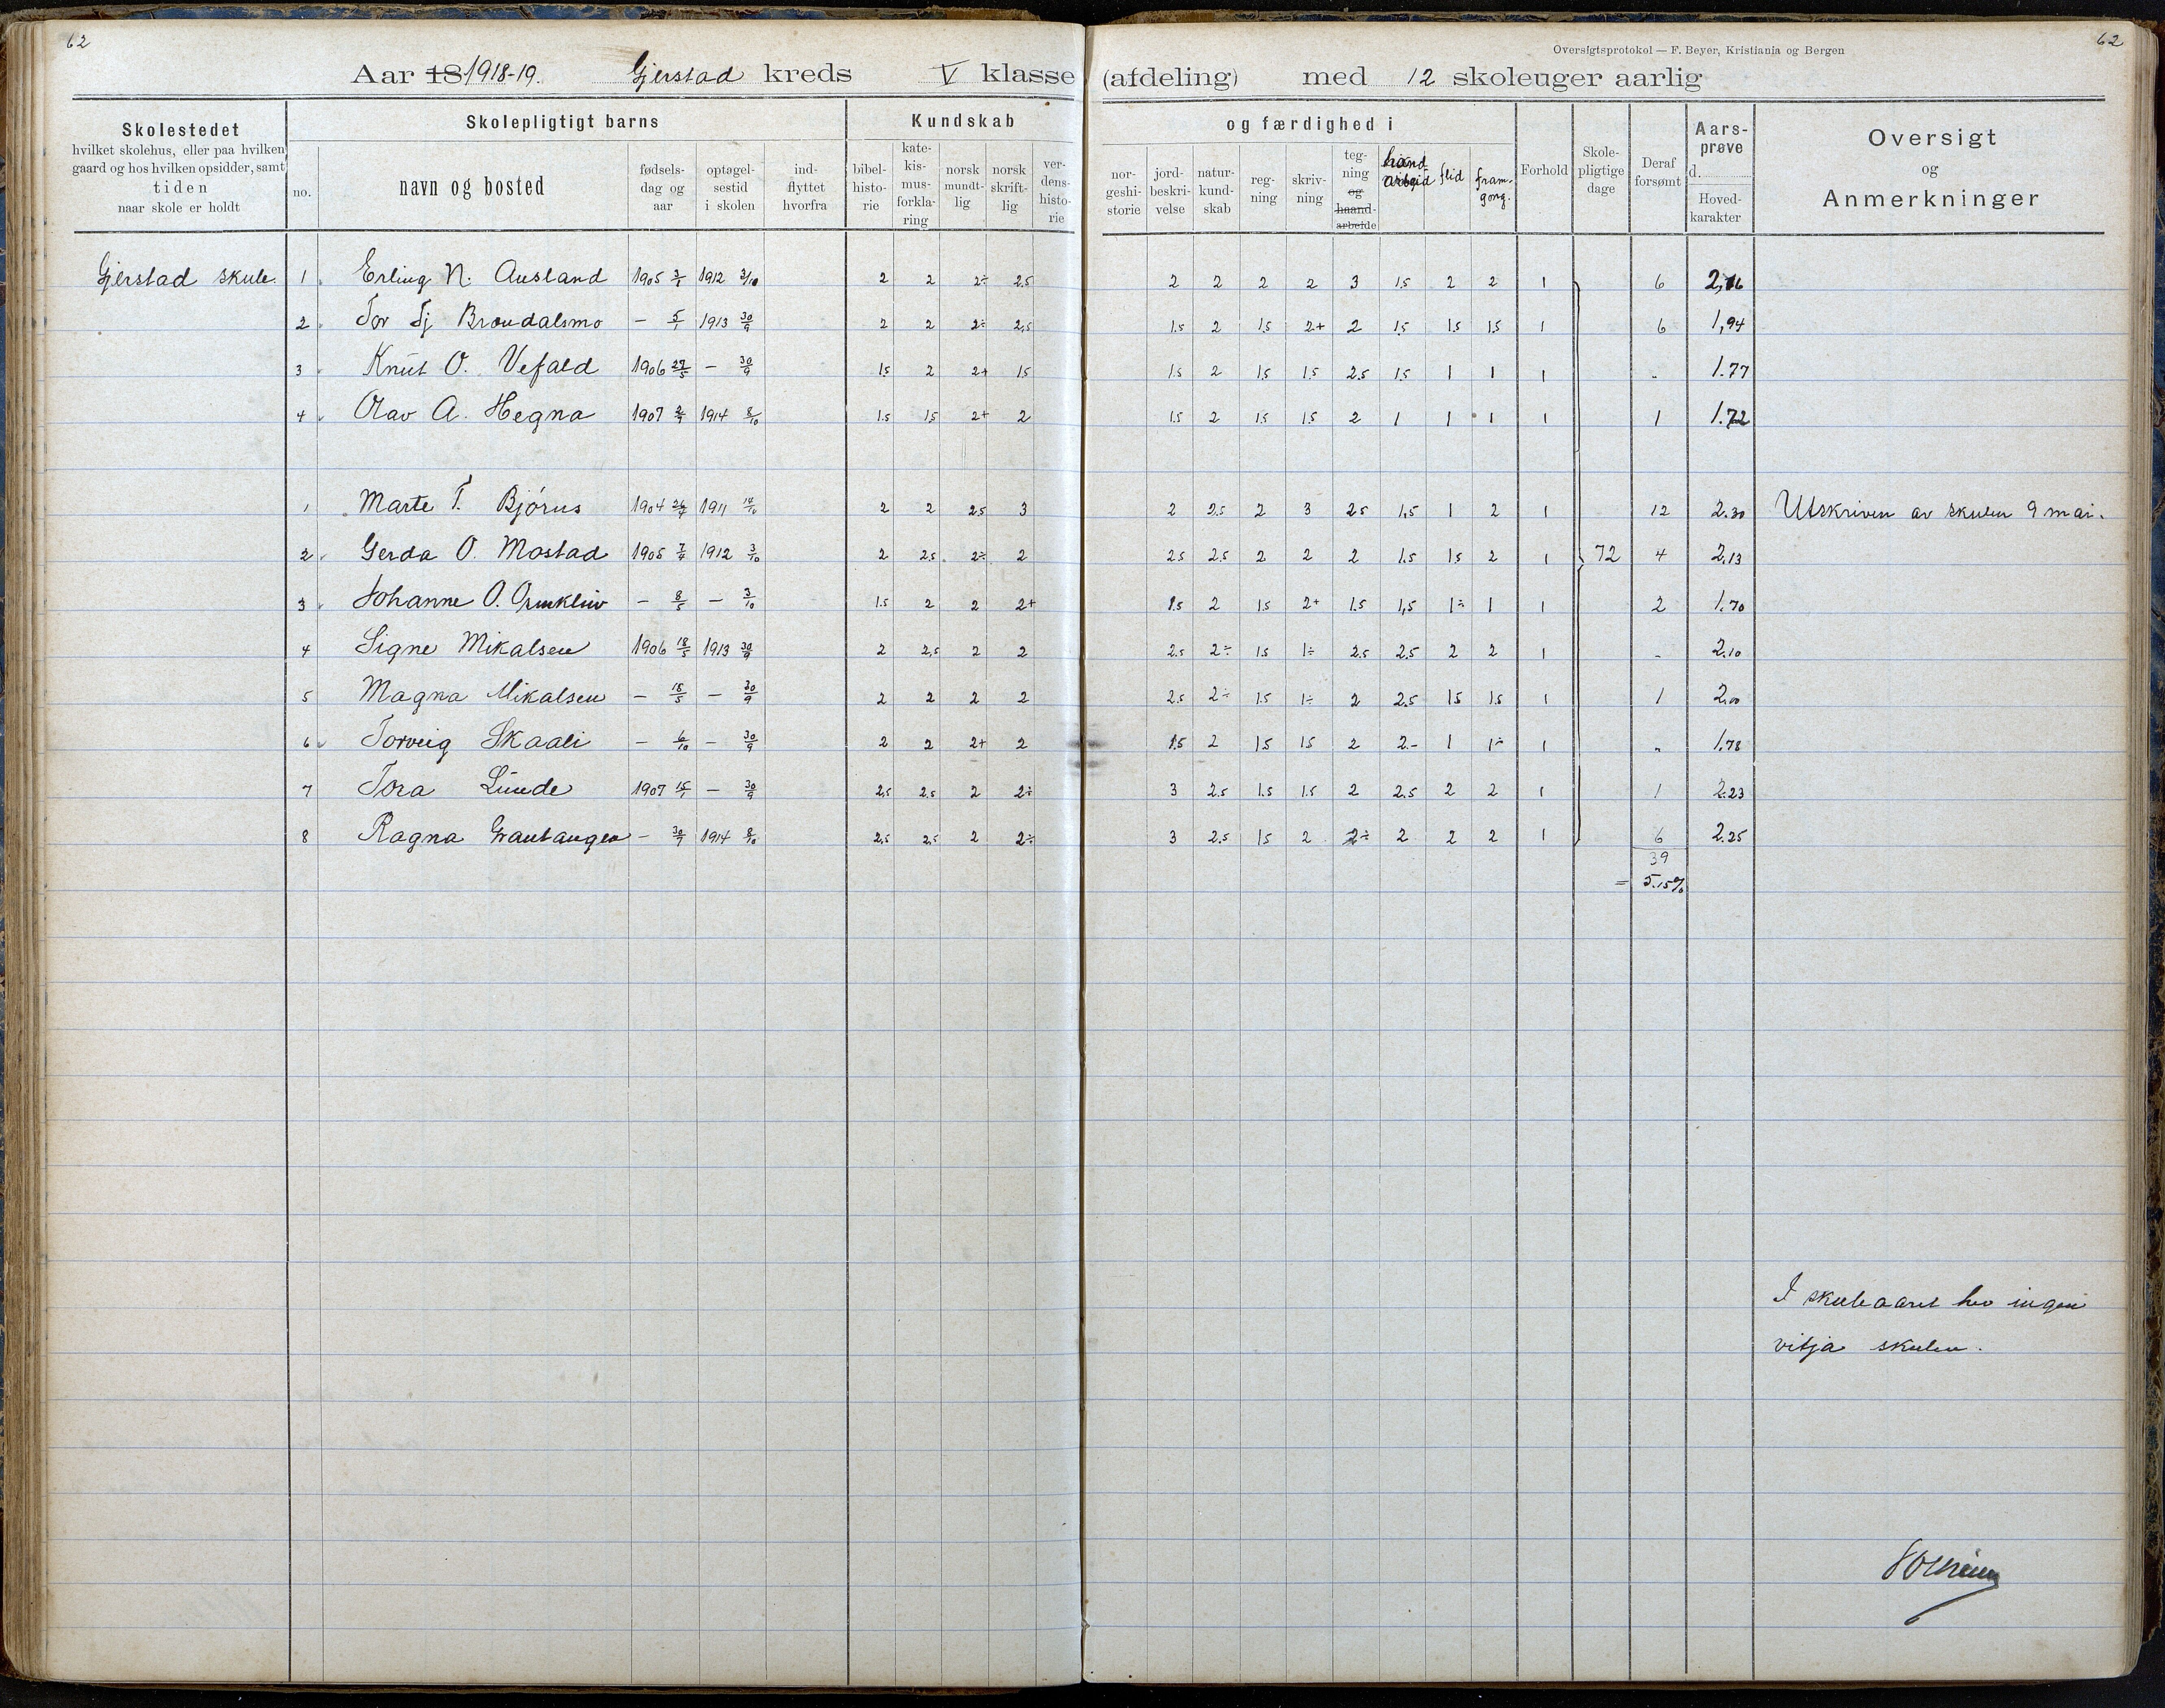 62
62
Oversigtsprotokol — F. Beyer, Kristiania og Bergen
Aar 18 1918-19. Gjerstad kreds V klasse (afdeling) med 12 skoleuger aarlig
Skolestedet
hvilket skolehus, eller paa hvilken
gaard og hos hvilken opsidder, samt
tiden
naar skole er holdt
Skolepligtigt barns
no.
navn og bosted
fødsels-
dag og
aar
optagel-
sestid
i skolen
ind-
flyttet
hvorfra
Kundskab
bibel-
histo-
rie
kate-
kis-
mus-
forkla-
ring
norsk
mundt-
lig
norsk
skrift-
lig
ver-
dens-
histo-
rie
og færdighed i
nor-
geshi-
storie
jord-
beskri-
velse
natur-
kund-
skab
reg-
ning
skriv-
ning
teg-
ning
og
haand-
arbeide
hand
arbeid
flid
fram-
gong.
Forhold
Skole-
pligtige
dage
Deraf
forsømt
Aars-
prøve
d.
Hoved-
karakter
Oversigt
og
Anmerkninger
Gjerstad skule. 1. Erling N. Ausland 1905 3/1 1912 3/10 2 2 2÷ 2.5 2 2 2 2 3 1.5 2 2 1 6 2,16
2. Tor Tj Brøudalsmo — 5/1 1913 30/9 2 2 2÷ 2,5 1.5 2 1.5 2+ 2 1.5 1.5 1.5 1 6 1,94
3. Knut O. Vefald 1906 27/5 — 30/9 1.5 2 2+ 1.5 1.5 2 1.5 1.5 2.5 1.5 1 1 1 „ 1.77
4. Olav A. Hegna 1907 2/9 1914 8/10 1.5 1.5 2+ 2 1.5 2 1.5 1.5 2 1 1 1 1 1 1.72
1 Marte T. Bjórus 1904 26/7 1911 17/10 2 2 2.5 3 2 2.5 2 3 2.5 1,5 1 2 1 12 2.30 Utskriven av skulen 9 mai.
2. Gerda O. Mostad 1905 7/4 1912 3/10 2 2.5 2÷ 2 2.5 2.5 2 2 2 1.5 1.5 2 1 72 4 2.13
3. Johanne O. — 8/5 — 3/10 1.5 2 2 2+ 1.5 2 1.5 2+ 1.5 1,5 1÷ 1 1 2 1.70
4 Signe Mikalsen 1906 18/5 1913 30/9 2 2,5 2 2 2.5 2÷ 1.5 1÷ 2.5 2.5 2 2 1 „ 2.10
5 Magna Mikalsen — 18/5 — 30/9 2 2 2 2 2.5 2÷ 1.5 1÷ 2 2.5 1.5 1.5 1 1 2,00
6 Torveig Skaali — 6/10 — 30/9 2 2 2+ 2 1.5 2 1.5 1.5 2 2.- 1 1÷ 1 „ 1.78
7 Tora Lunde 1907 15/1 — 30/9 2,5 2.5 2 2÷ 3 2.5 1.5 1.5 2 2.5 2 2 1 1 2.23
8 Ragna — 30/9 1914 8/10 2,5 2,5 2 2÷ 3 2.5 1.5 2 2÷ 2 2 2 1 6 2.25
39
= 5.15%
I skuleaaret hev ingen
vitja skulen.